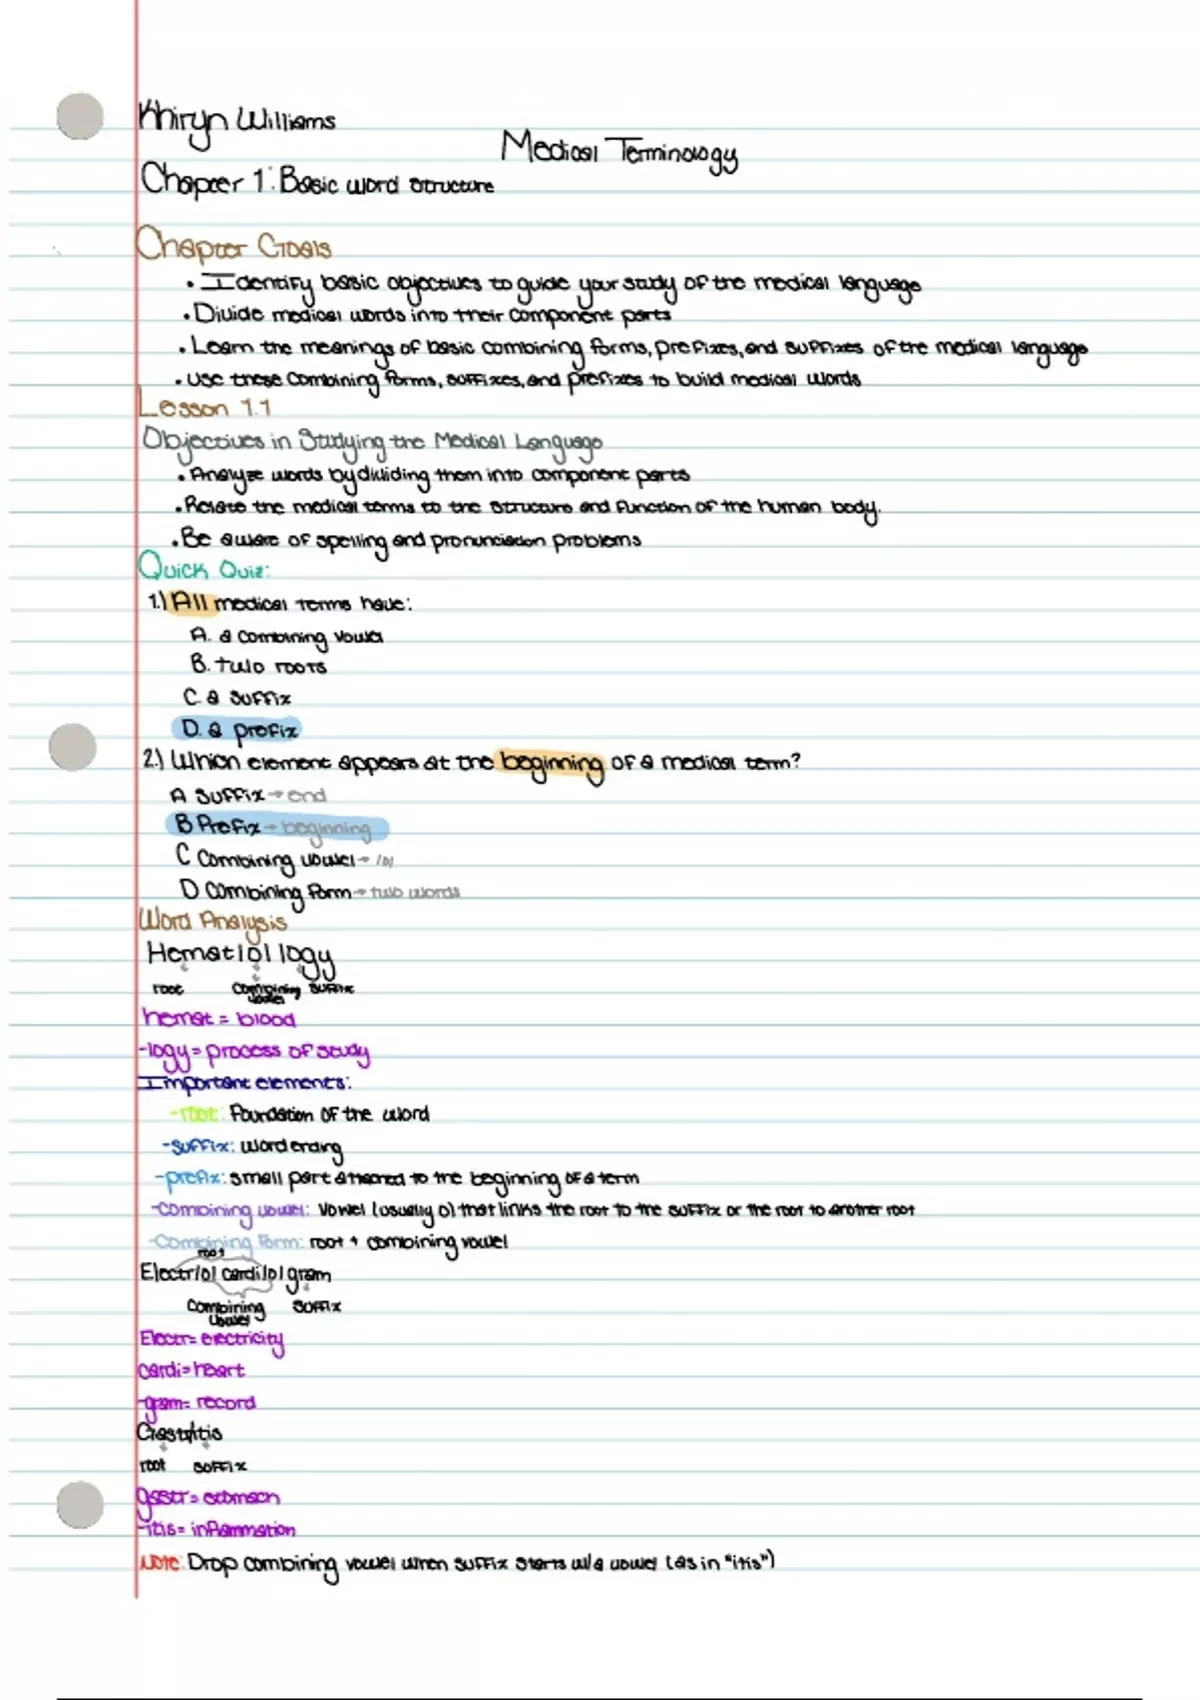 Khiryn Williams
Medical Terminology
Chapter 1: Basic word structure
Chapter Goals
• Identify basic objectives to guide your study of the medical language
• Divide medical words into their component parts
• Learn the meanings of basic combining forms, prefixes, and suffixes of the medical language
• Use these combining forms, suffixes, and prefixes to build medical words
Lesson 1.1
Objectives in Studying the Medical Language
• Analyze words by dividing them into component parts
• Relate the medical terms to the structure and function of the human body.
• Be aware of spelling and pronunciation problems
Quick Quiz:
1.) All medical terms have:
A. a combining vowel
B. two roots
C. a suffix
D. a prefix
2.) Which element appears at the beginning of a medical term?
A Suffix → end
B Prefix → beginning
C Combining vowel → /o/
D Combining form → two words
Word Analysis
Hemat/o/logy
root combining vowel suffix
hemat = blood
-logy = process of study
Important elements:
-root: Foundation of the word
-suffix: word ending
-prefix: small part attached to the beginning of a term
-Combining vowel: Vowel (usually o) that links the root to the suffix or the root to another root
-Combining Form: root + combining vowel
root
Electr/o/cardi/o/gram
Combining vowel suffix
Electr= electricity
cardi= heart
-gram= record
Gastr/itis
root suffix
gastr= stomach
-itis= inflammation
Note: Drop combining vowel when suffix starts w/a vowel (as in "itis")